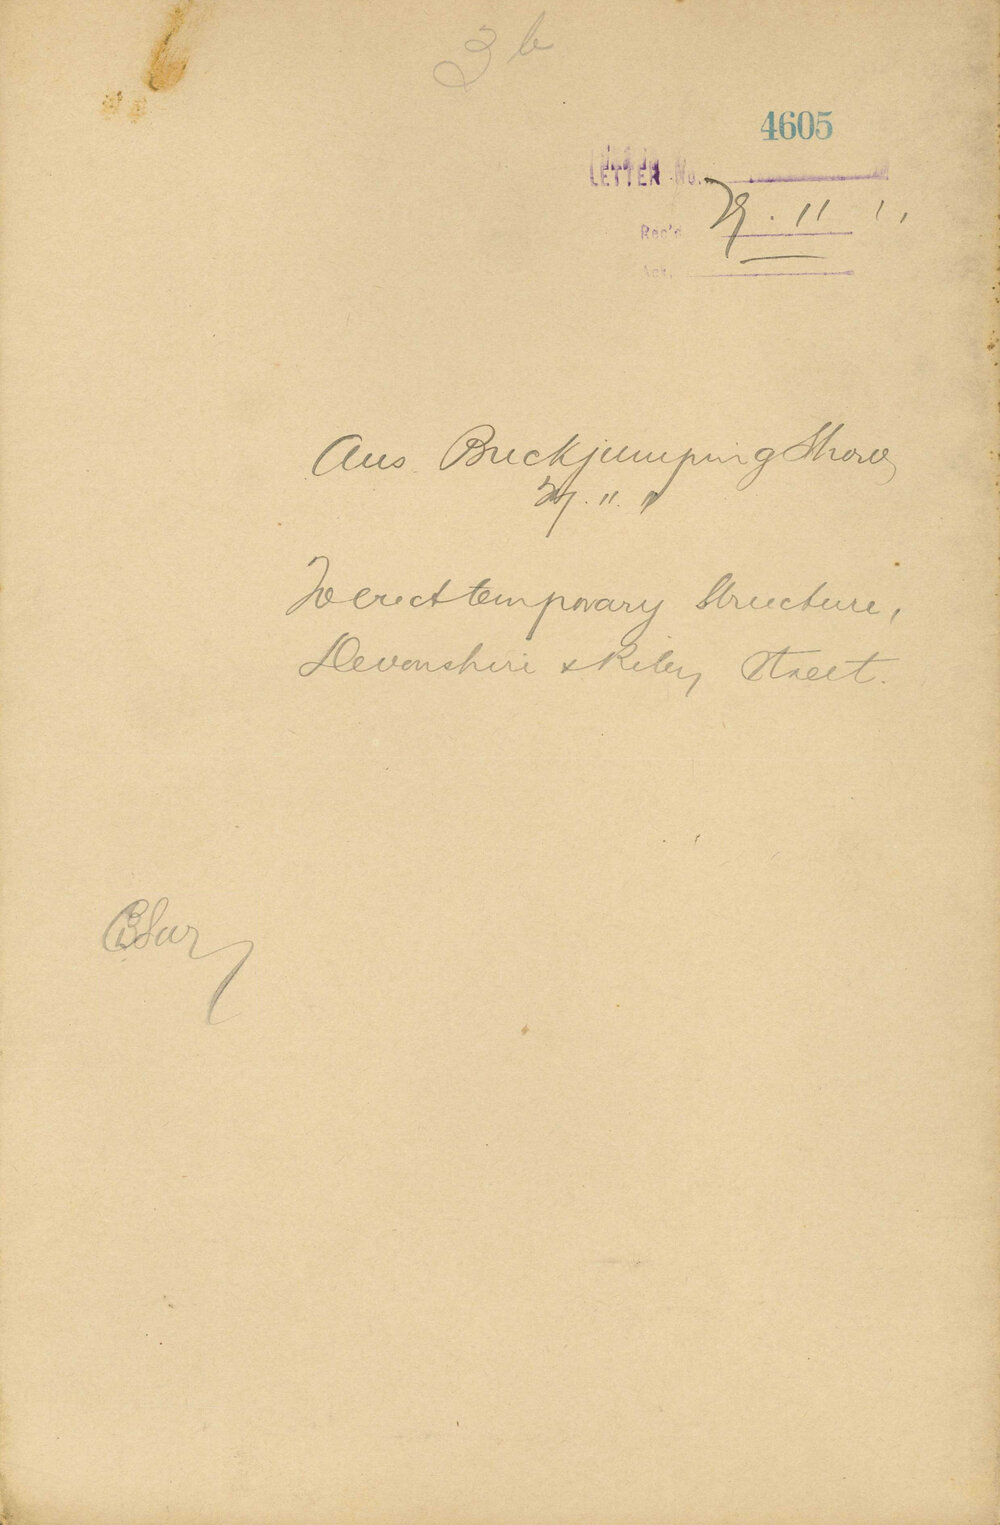 3b
4605
LETTER No.
Rec'd 29.11 11
Ack.
Aus Buckjumping Show
27.11.11
To erect temporary Structure,
Devonshire & Riley Street.